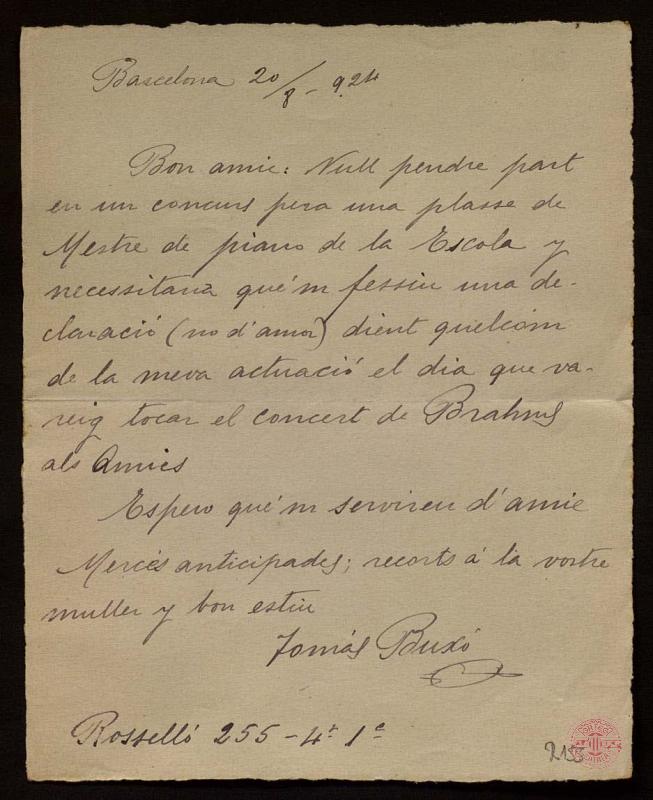 Barcelona 20/8-924
Bon amic: Vull pendre part
en un concurs pera una plasse de
Mestre de piano de la Escola y
necessitaria qué'm fessiu una de-
claració (no d'amor) dient quelcom
de la meva actuació el dia que va-
reig tocar el concert de Brahms
als Amics
Espero qué'm servireu d'amic
Mercés anticipades; recorts á la vostre
muller y bon estiu
Tomás Buxó
Rosselló 255 - 4t 1a
2155